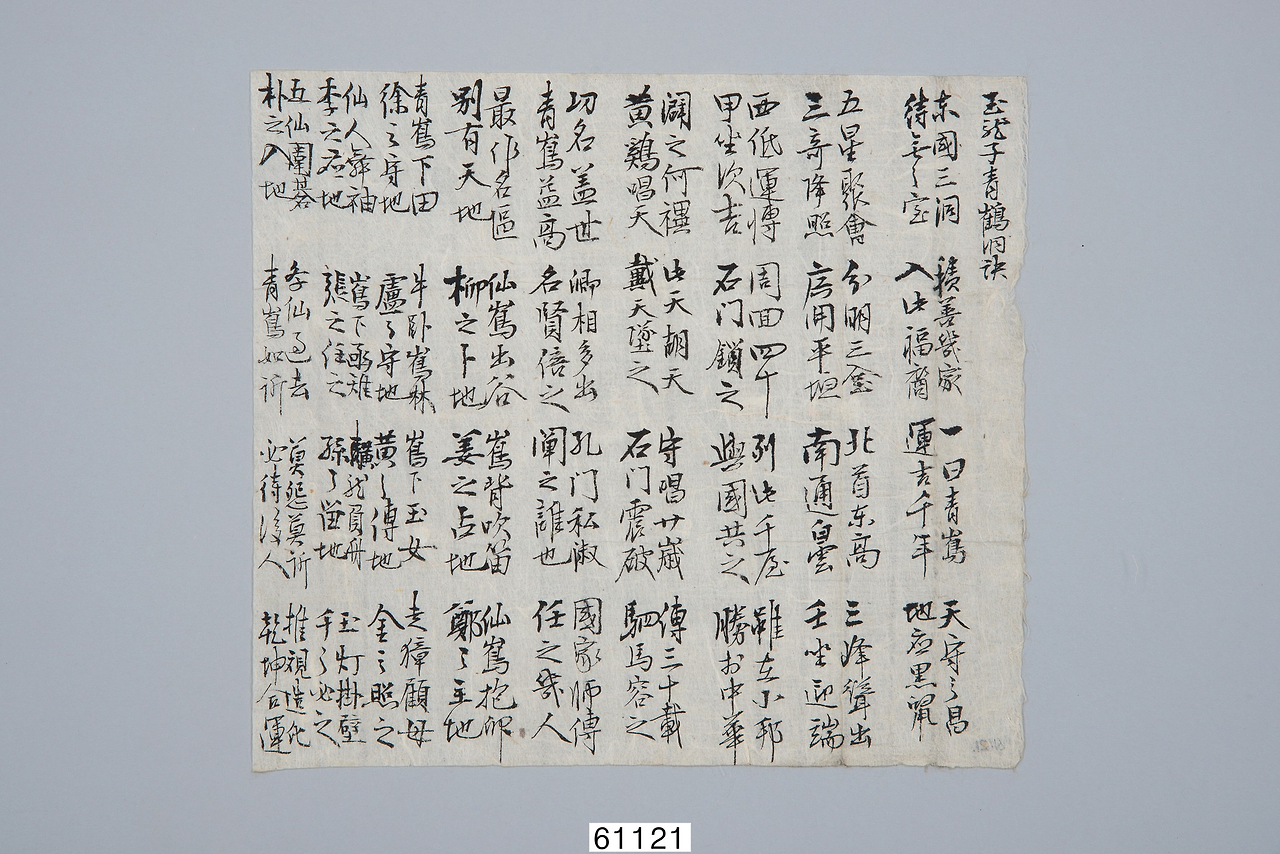 玉龍子青鶴洞訣
東國三洞 積善幾家 一曰青鶴 天守之昌
待無之定 入此福 運吉千年 地應黑鼠
五星聚會 分明三金 北首东高 三峰聳出
三奇降照 居用平坦 南通白雲 壬坐迎瑞
西低運悖 周回四十 列此千屋 雖在小邦
甲坐次吉 石门鎖之 與國共之 勝於中華
闢之何禩 此天胡天 守唱廿歲 傳三十載
黄鷄唱天 戴天墜之 石门震破 駟馬容之
功名盖世 卿相多出 孔门私淑 國家師傅
青鶴益高 名賢倍之 闡之誰也 任之幾人
最作名區 仙鶴出谷 鶴背吹笛 仙鶴抱卵
別有天地 柳之卜地 姜之占地 鄭之主地
青鶴下田 牛卧鶴林 鶴下玉女 走獐顧母
徐之守地 盧之守地 黄之傳地 金之照之
仙人舞袖 鶴下雉 龍負舟 玉灯掛壁
李之應地 張之住之 孫之留地 千之必之
五仙圍碁 仙過去 莫怨莫訴 推視造化
朴之入地 青鶴如訴 必待後人 乾坤合運
61121